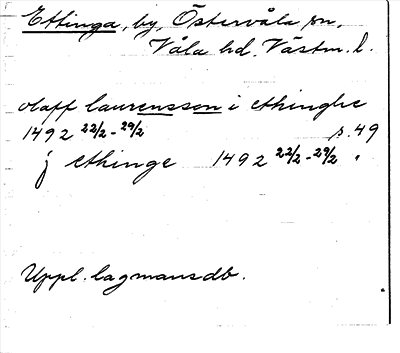 Ettinga, by, Östervåla sn,
Våla hd. Västm. l.
olaff laurensson i ethinghe
1492 22/2-29/2 s. 49
j ethinge 1492 22/2-29/2 "
Uppl. lagmansdb.